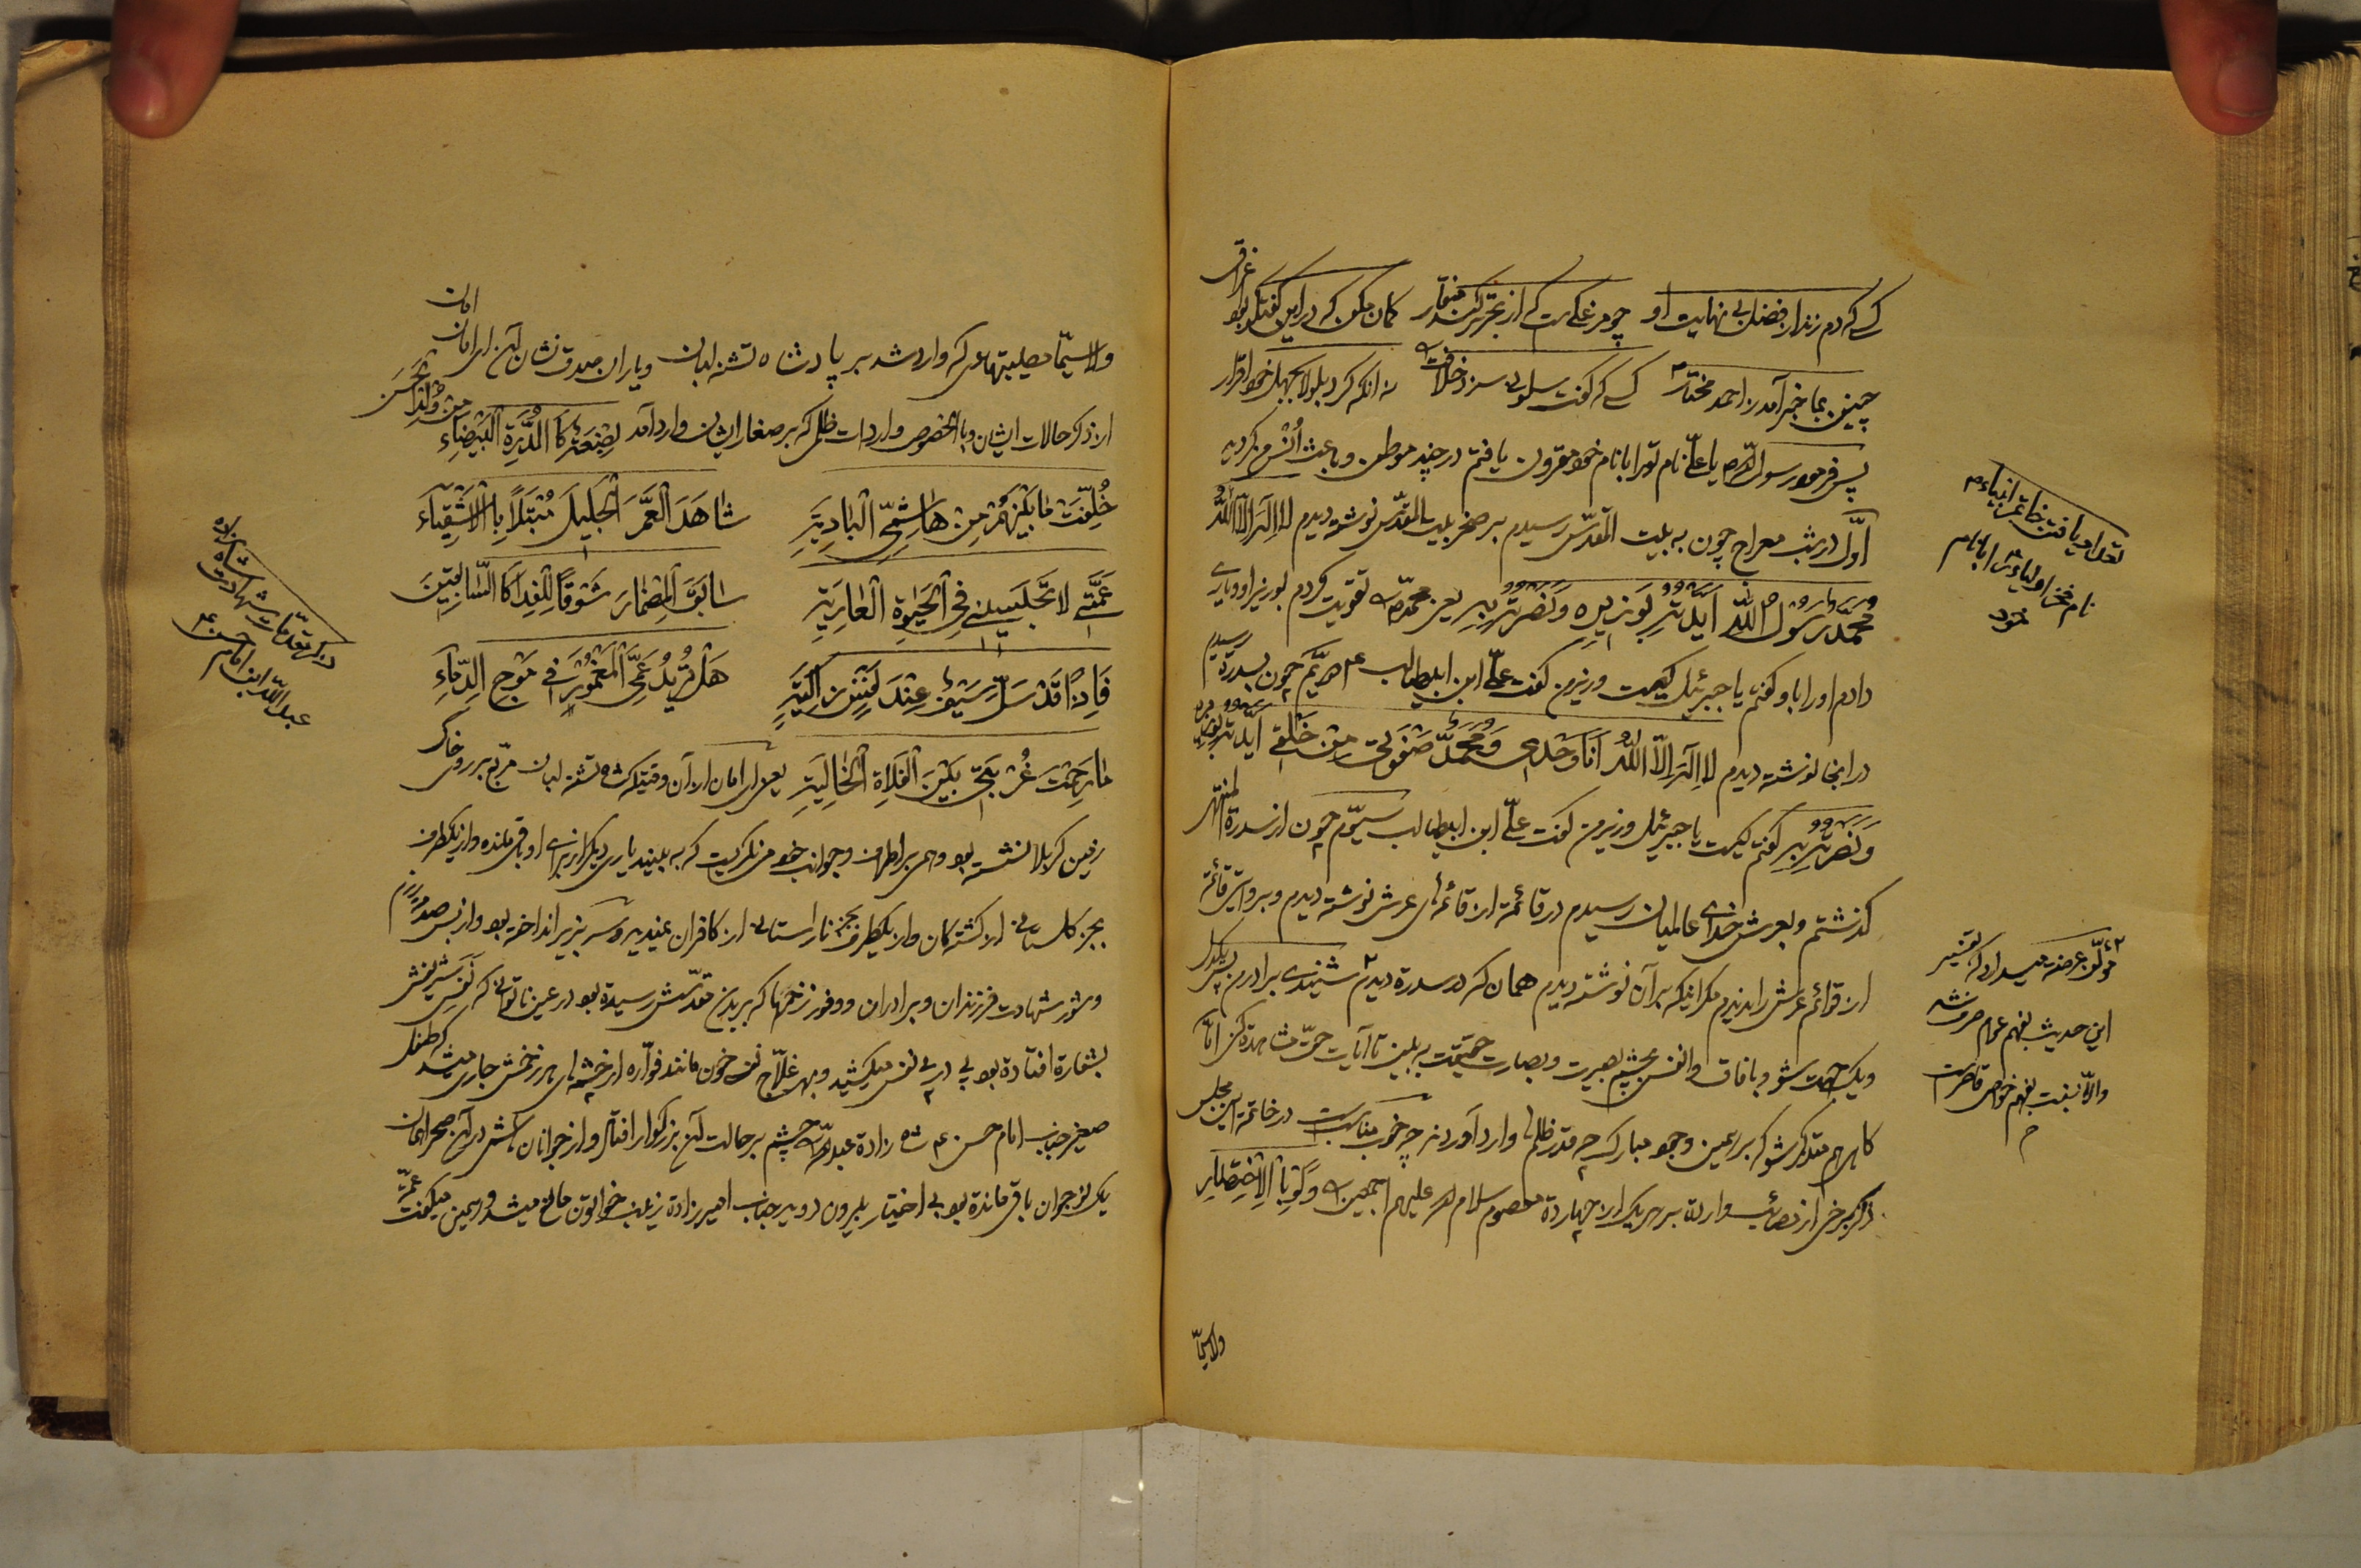 کسی که دم زند از فضل بی نهایت او چو مرغکی است که از بحر تر کند منقار گمان مکن که در این گفتگو بود اغراق
چنین بما خبر آمد ز احمد مختار کسی که گفت سلونی سزد خلافت نه آنکه کرد بلولا بجهل خود اقرار
پس فرمود رسول الله ص یا علی نام تو را با نام خود مقرون یافتم در چند موطن و باعث اُنس من گردید
اوّل در شب معراج چون به بیت المقدّس رسیدم بر صخره بیت المقدّس نوشته دیدم لا اِلهَ اِلّا اللّهُ
مُحَمَّدٌ رَسُولُ اللّهِ اَیَّدْتُهُ بِوَزیرِهِ وَ نَصَرْتُهُ بِهِ یعنی محمّد ص تقویت کردم بوزیر او و یاری
دادم او را باو گفتم یا جبرئیل کیست وزیر من گفت علیّ ابن ابیطالب ع دویّم چون بسدرة رسیدم
در آنجا نوشته دیدم لا اِلهَ اِلّا اللّهُ اَنَا وَحْدی وَ مُحَمَّدٌ صَفْوَتی مِنْ خَلْقی اَیَّدْتُهُ بِوَزیرِهِ
وَ نَصَرْتُهُ بِهِ گفتم کیست یا جبرئیل وزیر من گفت علیّ ابن ابیطالب سیّوم چون از سدرة المنتهی
گذشتم و بعرش خدای عالمیان رسیدم در قائمه از قائمهای عرش نوشته دیدم و بروایتی قائمهٔ
از قوائم عرش را ندیدم مگر اینکه بر آن نوشته دیدم همان که در سدرة دیدم شنیدی برادر من پس یکدل
و یک جهت شو و بآفاق و انفس بچشم بصیرت و بصارت حقیقت به بین تا آیات حقّ مشاهده کنی امّا
گاهی هم متذکر شو که بر همین وجود مبارک چه قدر ظلمها وارد آوردند چه خوب مناسبست در خاتمه این مجلس
ذکر برخی از مصائب وارده بر هر یک از چهارده معصوم سلام الله علیهم اجمعین وَ لَوْ بِالْاِخْتِصارِ
ولاسیّما
تعداد یافتن خاتم انبیاء ص
نام فخر اولیاء را با نام
خود
مؤلّف عرضه میدارد که تفسیر
این حدیث بفهم عوام عرض شد
والّا نسبت بفهم خواص قاصر است
ولاسیّما مصیبتهائی که وارد شد بر پادشاه تشنه لبان و یاران صدق نشان آن امان امان
از ذکر حالات ایشان و بالخصوص واردات ظلمی که بر صغار ایشان وارد آمد بِضْعَةٌ کَالدُّرَّةِ الْبَیْضاءِ مِنْ وُلْدِ الْحَسَنِ
خُلِّفَتْ ما بَیْنَهُمْ مِنْ هاشِمِیّ الْبادِیَةِ شاهَدَ الْعَمَّ الْجَلیلَ مُبْتَلاً بِالْاَشْقِیاءِ
عَمَّتی لا تَحْبِسینی فِی الْحَیوةِ الْعارِیَةِ سابَقَ الْمِضْمارَ شَوْقاً لِلْفِدا کَالسّابِقینَ
فَاِذاً قَدْ سَلَّ سَیْفٌ عِنْدَ هَلْ تُریدُ عَمِّیَ الْمَغْمُورَ فی مَوْجِ الدِّماءِ
ما رَحِمْتَ غُرْبَتی بَیْنَ الْفَلاةِ الْخالِیَةِ یعنی ای امان از آن وقتیکه شاه تشنه لبان مربّع بر روی خاک
زمین کربلا نشسته بود و همی بر اطراف و جوانب خود می نگریست که به بیند یاری دیگر از برای او باقی مانده و از یکطرف
بجز گلستانی از کشتگان و از یکطرف بجز نارستانی از کافران ندیده و سر بزیر انداخته بود و از بس صدمه
و شور شهادت فرزندان و برادران و وفور زخمها که بر بدن مقدّسش رسیده بود در عین ناتوانی که نفس شریفش
بشماره افتاده بود پی در پی نفس میکشید و خون مانند فوّاره از چشمهای هر زخمش جاری میشد که طفل
صغیر جناب امام حسن ع شاه زاده عبدالله چشم بر حالت آن بزرگوار افتاد و از جوانان در آن صحرا همان
یک نوجوان باقی مانده بود بی اختیار بیرون دوید جناب امیرزاده زینب خواتون مانع میشد و همین میگفت عمّه
ذکر مقدّمات شهادت شاهزاده
عبدالله ابن امام حسن ع